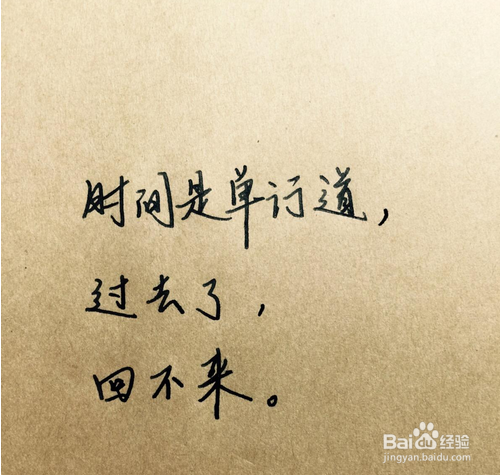 时间是单行道，
过去了，
回不来。
Baidu经验
jingyan.baidu.com